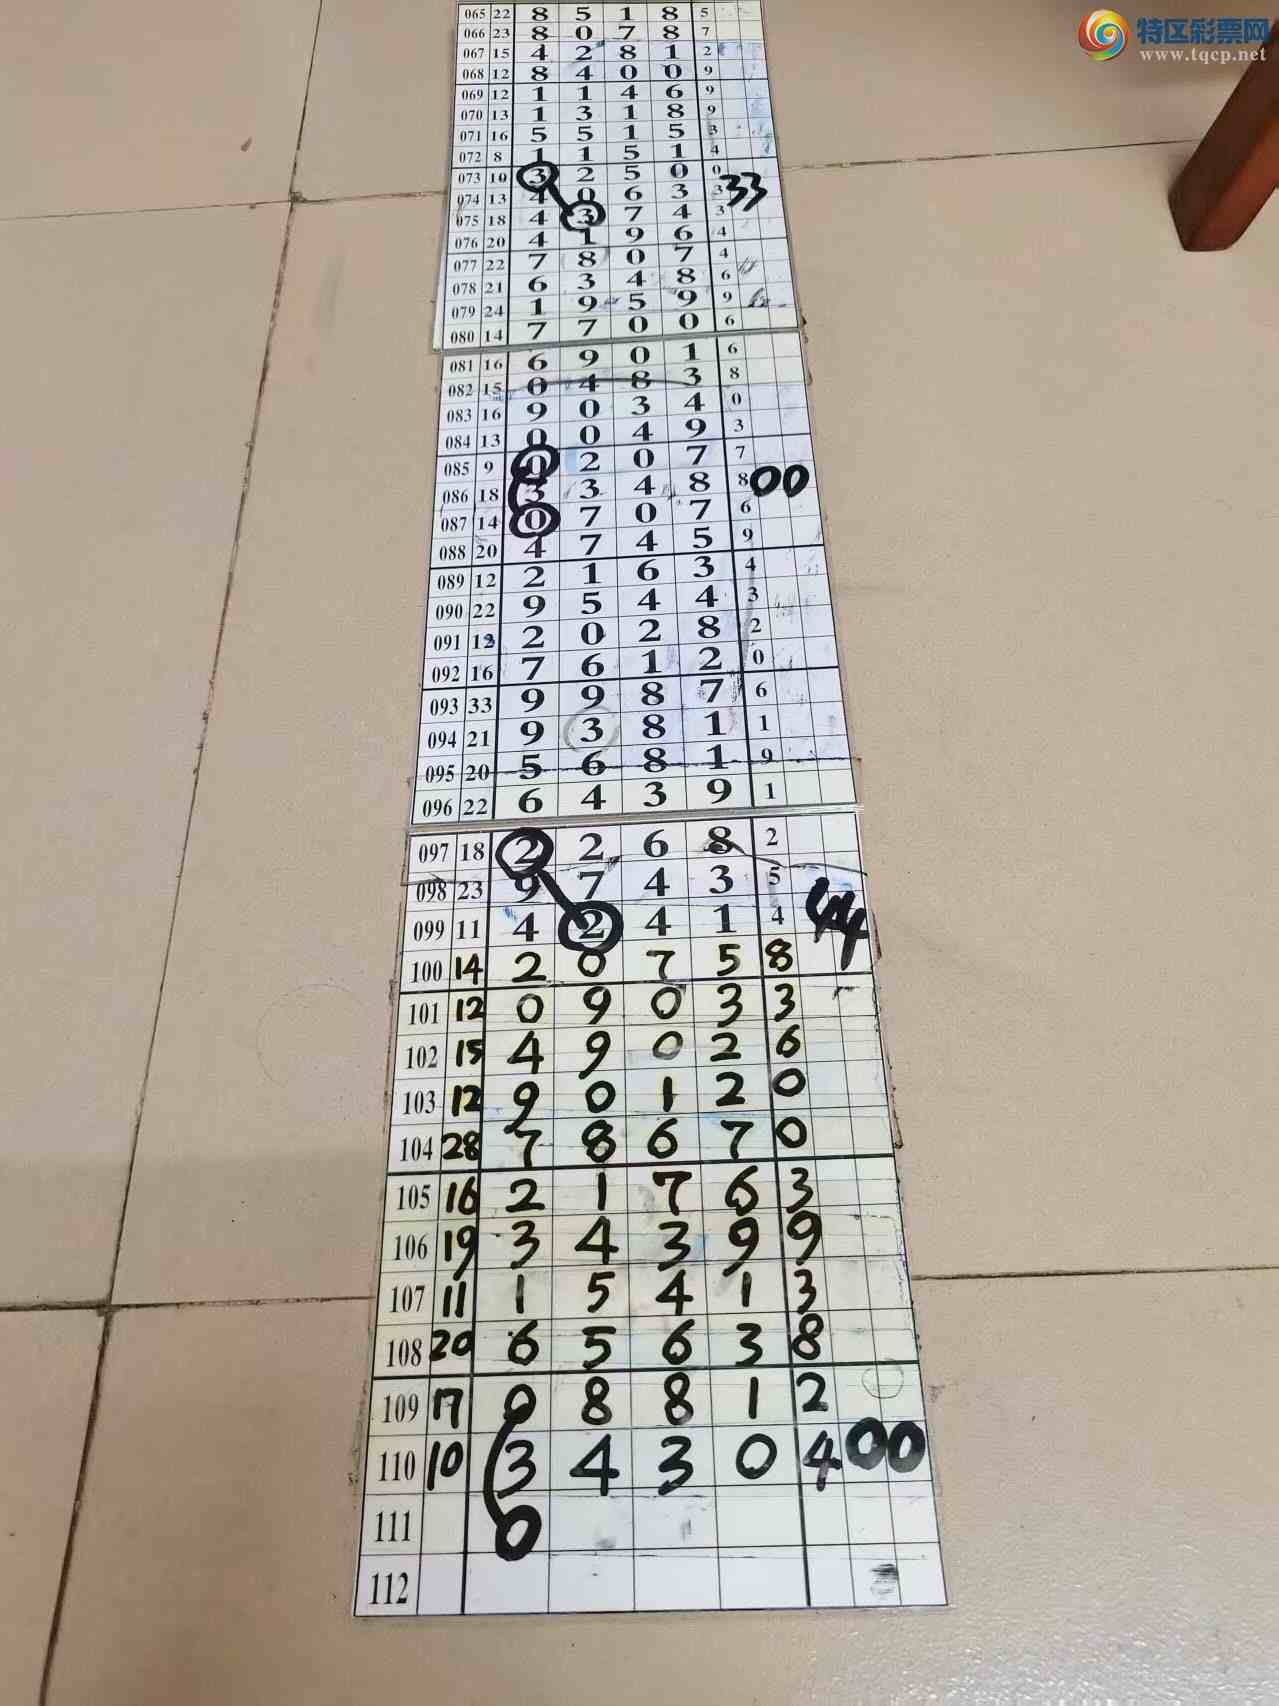 特区彩票网
www.tqcp.net
065 22 8 5 1 8 5
066 23 8 0 7 8 7
067 15 4 2 8 1 2
068 12 8 4 0 0 9
069 12 1 1 4 6 9
070 13 1 3 1 8 9
071 16 5 5 1 5 3
072 8 1 1 5 1 4
073 10 3 2 5 0 0
074 13 4 0 6 3 3 33
075 18 4 3 7 4 3
076 20 4 1 9 6 4
077 22 7 8 0 7 4
078 21 6 3 4 8 6
079 24 1 9 5 9 9
080 14 7 7 0 0 6
081 16 6 9 0 1 6
082 15 0 4 8 3 8
083 16 9 0 3 4 0
084 13 0 0 4 9 3
085 9 0 2 0 7 7
086 18 3 3 4 8 8 00
087 14 0 7 0 7 6
088 20 4 7 4 5 9
089 12 2 1 6 3 4
090 22 9 5 4 4 3
091 12 2 0 2 8 2
092 16 7 6 1 2 0
093 33 9 9 8 7 6
094 21 9 3 8 1 1
095 20 5 6 8 1 9
096 22 6 4 3 9 1
097 18 2 2 6 8 2
098 23 9 7 4 3 5
099 11 4 2 4 1 4 44
100 14 2 0 7 5 8
101 12 0 9 0 3 3
102 15 4 9 0 2 6
103 12 9 0 1 2 0
104 28 7 8 6 7 0
105 16 2 1 7 6 3
106 19 3 4 3 9 9
107 11 1 5 4 1 3
108 20 6 5 6 3 8
109 17 0 8 8 1 2
110 10 3 4 3 0 4 00
111 0
112